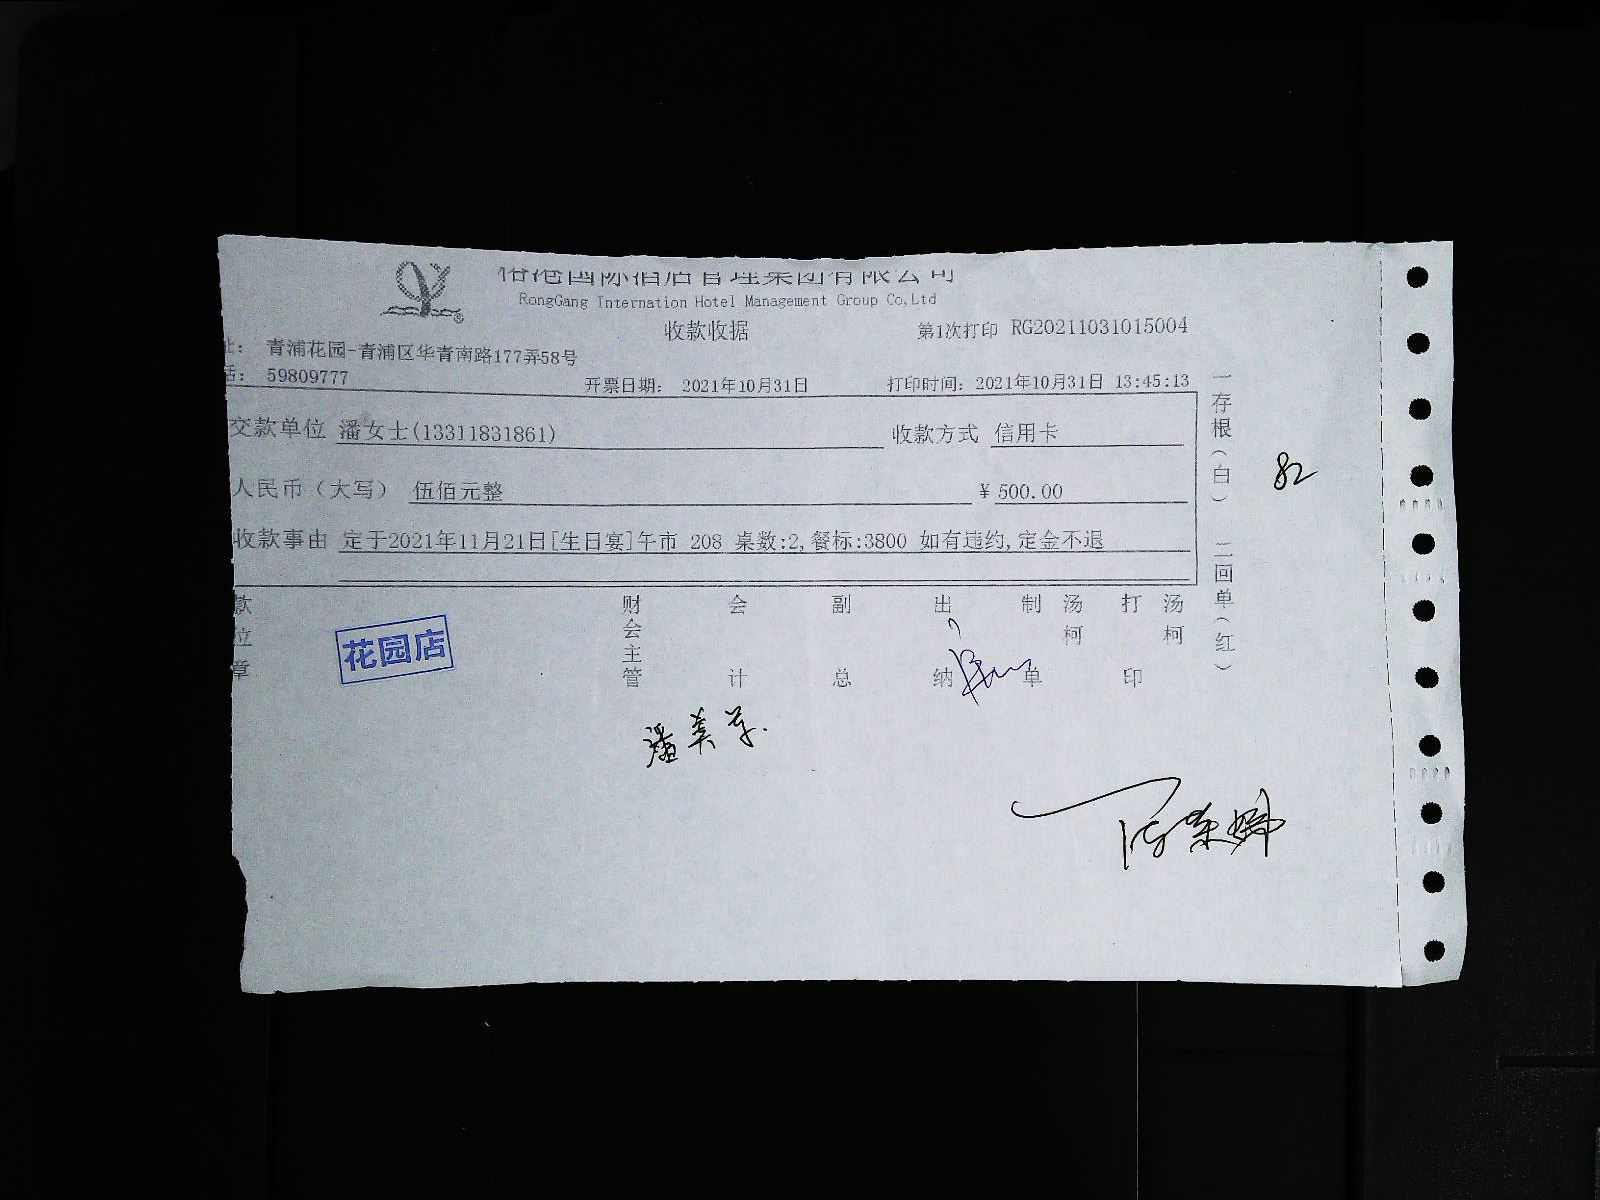 国际酒店管理集团有限公司
RongGang Internation Hotel Management Group Co,Ltd
收款收据
第1次打印 RG20211031015004
址: 青浦花园-青浦区华青南路177弄58号
话: 59809777
开票日期: 2021年10月31日
打印时间: 2021年10月31日 13:45:13
交款单位 潘女士(13311831861)
收款方式 信用卡
人民币(大写) 伍佰元整
¥ 500.00
收款事由 定于2021年11月21日[生日宴]午市 208 桌数:2,餐标:3800 如有违约,定金不退
一存根(白) 二回单(红)
82
款位章
花园店
财会主管
会计
副总
出纳
制单
汤柯
打印
汤柯
潘美